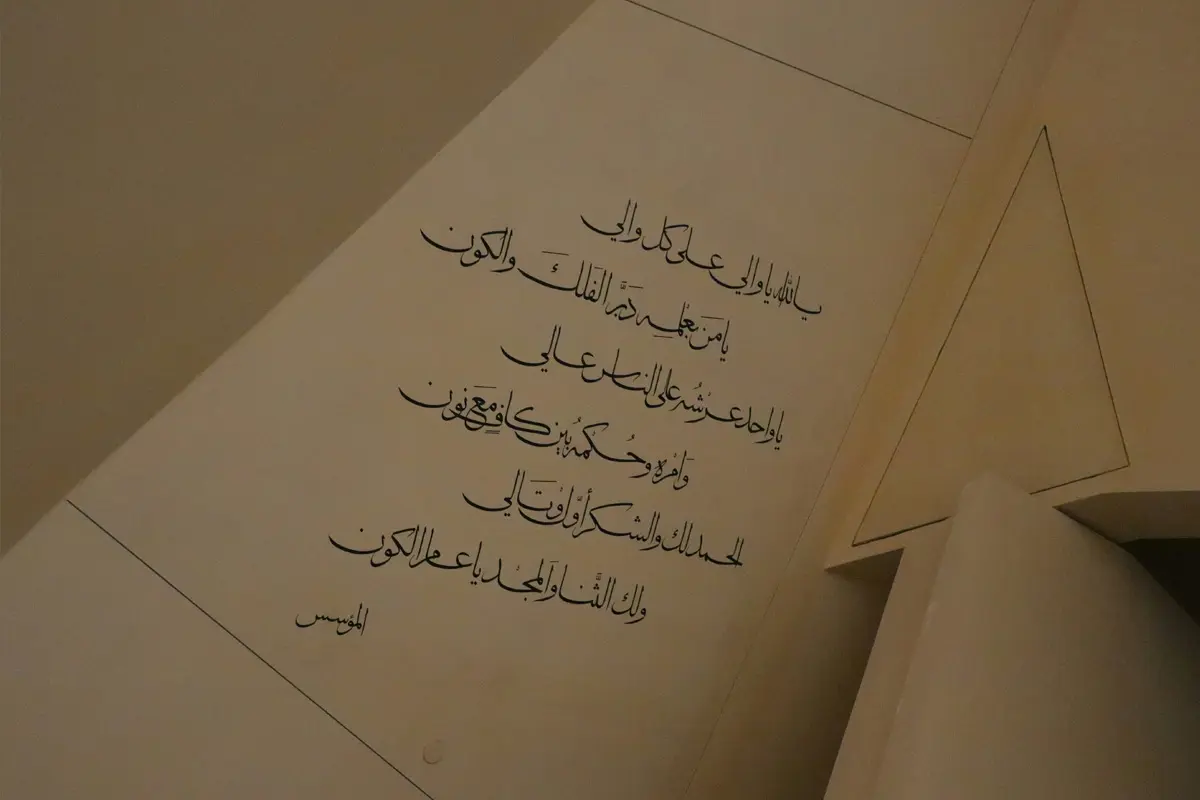 يالله يا والي على كل والي
يا مَن بعْلمِه دَبَّر الفَلَكَ والكون
يا واحد عرشُه على الناس عالي
وَامْره وحُكْمه بيُن كافٍ مَعَ نون
الحمد لك والشكر أوَّل وَتَالي
ولك الثَّنا وَالمجْد يا عامر الكون
المؤسس